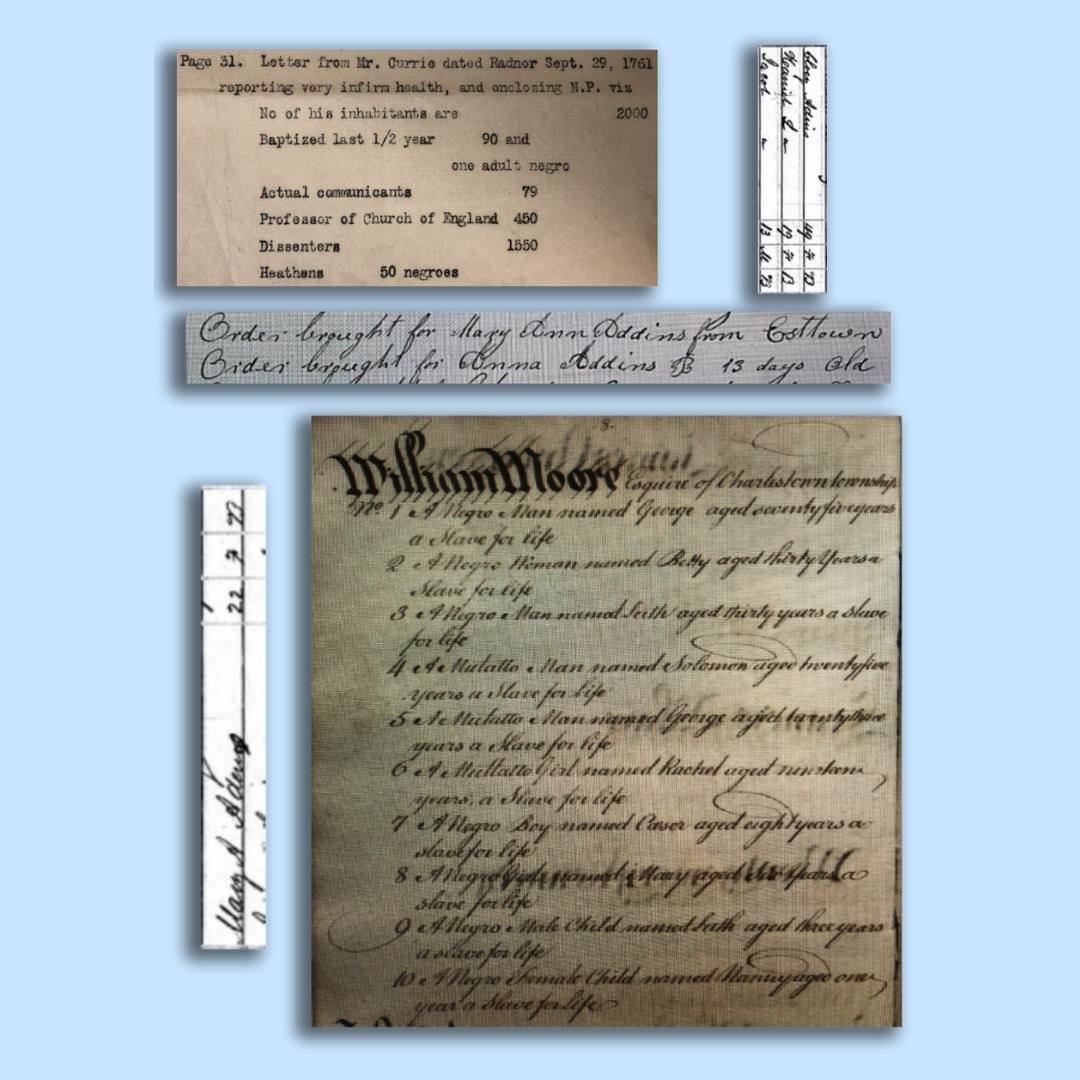 Page 31. Letter from Mr. Currie dated Radnor Sept. 29, 1761
reporting very infirm health, and enclosing N.P. viz
No of his inhabitants are 2000
Baptized last 1/2 year 90 and
one adult negro
Actual communicants 79
Professor of Church of England 450
Dissenters 1550
Heathens 50 negroes
Adins 49 F B
19 F B
Jacob " 13 M B
Order brought for Mary Ann Addins from Esttown
Order brought for Anna Addins B 13 days Old
Mary A Adams 22 F B
8
William Moore Esquire of Charlestown township
No. 1 A Negro Man named George aged seventy five years
a Slave for life
2 A Negro Woman named Betty aged thirty Years a
Slave for life
3 A Negro Man named Seth aged thirty years a slave
for life
4 A Mulatto Man named Solomon aged twenty five
years a Slave for life
5 A Mulatto Man named George aged twenty three
years a Slave for life
6 A Mullatto Girl named Rachel aged nineteen
years, a Slave for life
7 A Negro Boy named Cæsor aged eight years a
slave for life
8 A Negro Girl named Mary aged Six Years a
slave for life
9 A Negro Male Child named Seth aged three years
a slave for life
10 A Negro Female Child named Nanny aged one
year a Slave for Life